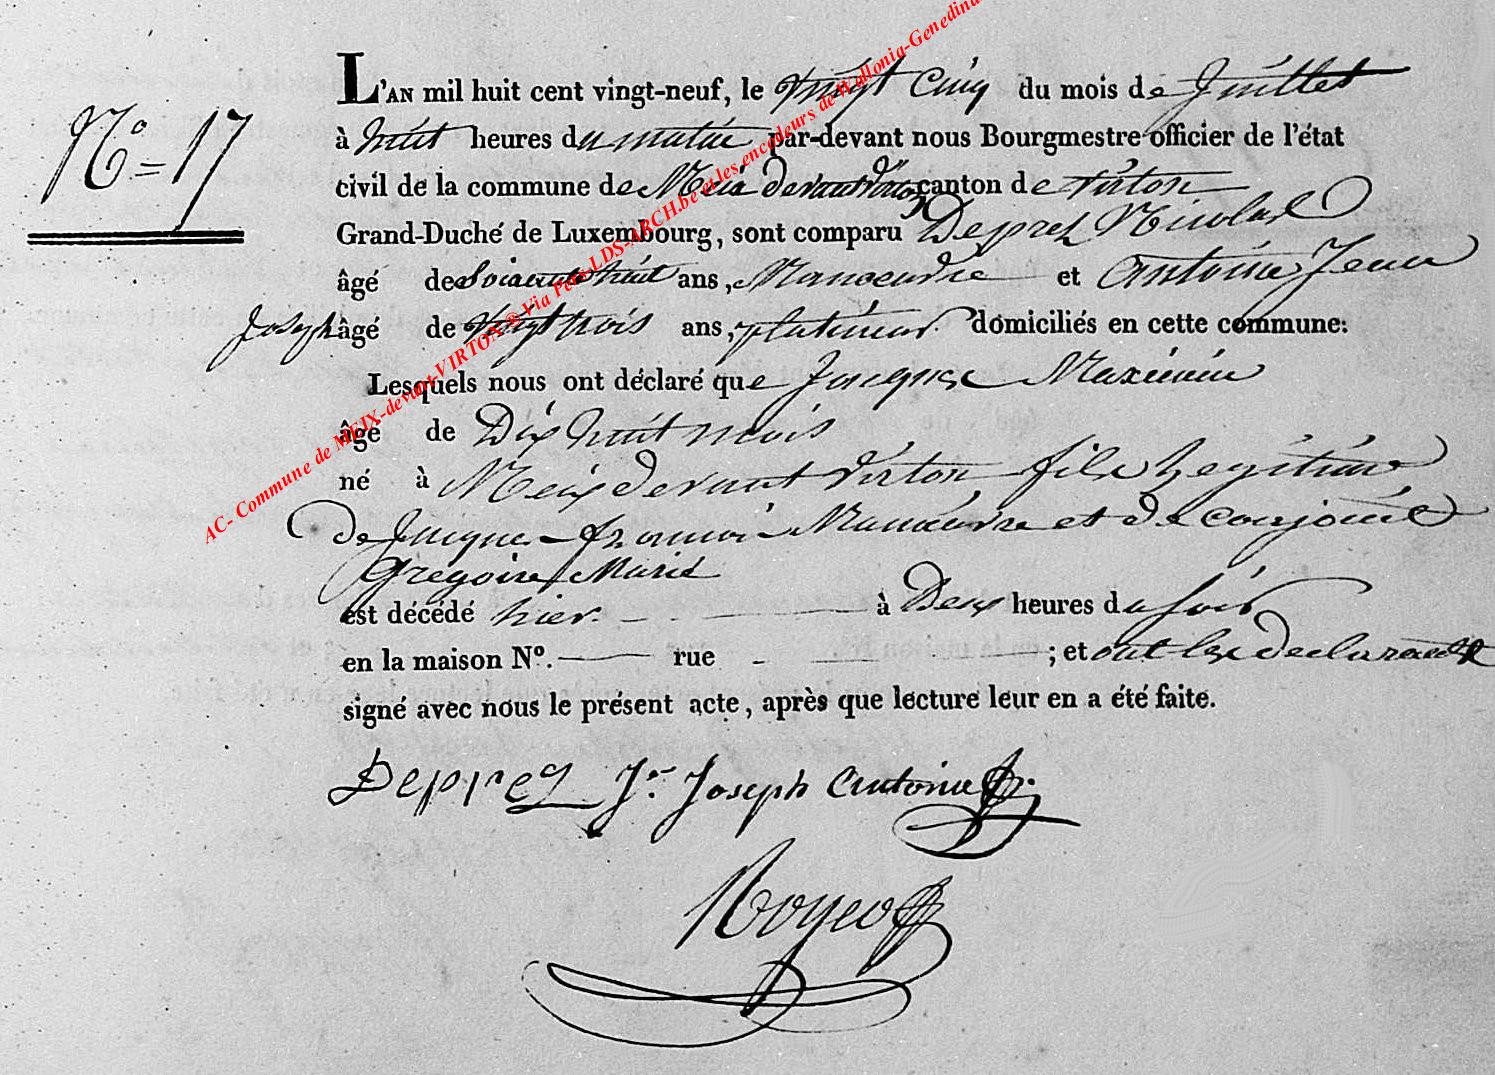 N.o = 17
L'AN mil huit cent vingt-neuf, le vingt Cinq du mois de Juillet
à huit heures du matin par-devant nous Bourgmestre officier de l'état
civil de la commune de Meix devant Virton canton de virton
Grand-Duché de Luxembourg, sont comparu Deprez Nicolas
âgé de Soixante huit ans, Manoeuvre et Antoine Jean
Joseph âgé de vingt trois ans, platineur domiciliés en cette commune:
Lesquels nous ont déclaré que Jacques Maximin
âgé de Dix huit mois
né à Meix devant Virton fils Legitime
de Jacques françois Manoeuvre et de conjointe
Gregoire Marie
est décédé hier. à Deux heures du soir
en la maison N°. rue ; et ont les declarants
signé avec nous le présent acte, après que lecture leur en a été faite.
Deprez Jn Joseph Antoine
AC- Commune de MEIX-devant-VIRTON® Via Pets-LDS-ARCH.be et les encodeurs de Wallonia-Genedina